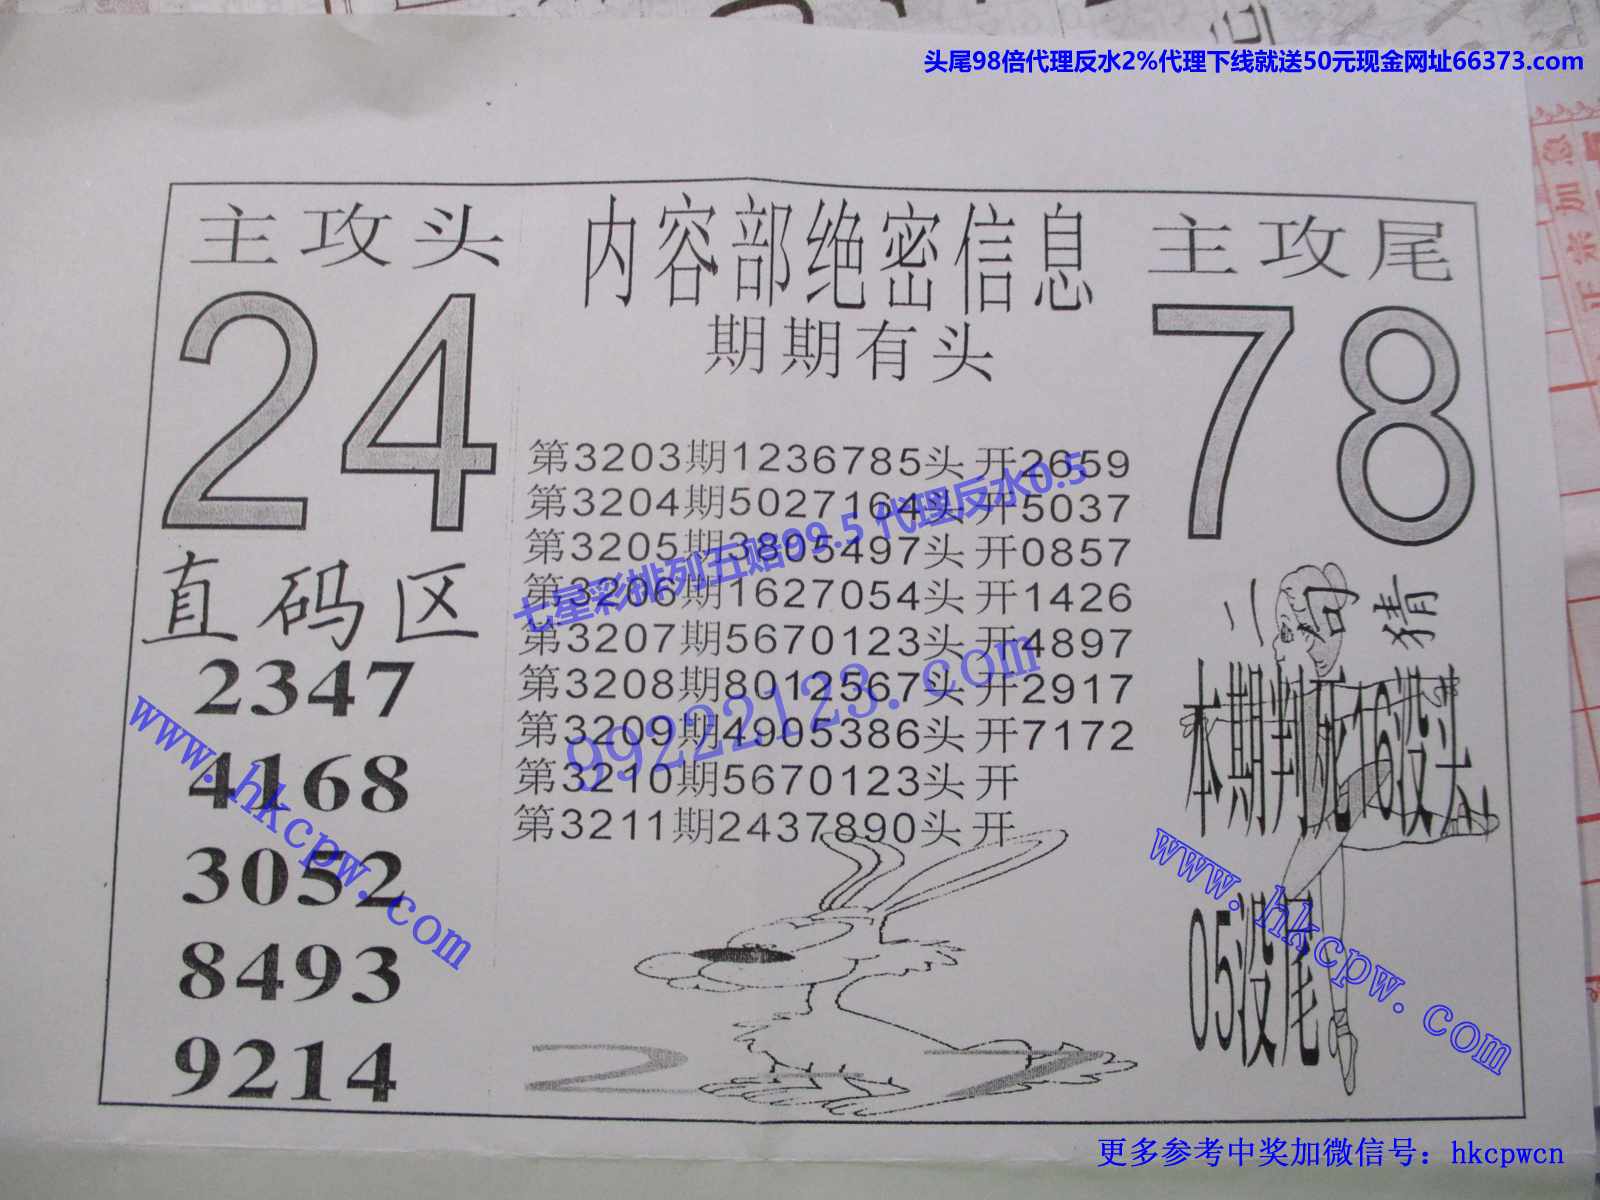 头尾98倍代理反水2%代理下线就送50元现金网址66373.com
主攻头
24
内容部绝密信息
期期有头
主攻尾
78
第3203期1236785头 开2659
第3204期5027164头 开5037
第3205期3805497头 开0857
第3206期1627054头 开1426
第3207期5670123头 开4897
第3208期8012567头 开2917
第3209期4905386头 开7172
第3210期5670123头 开
第3211期2437890头 开
七星彩排列五赔99.5 代理反水0.5
99222123.com
直码区
2347
4168
3052
8493
9214
www.hkcpw.com
二句猜
本期判死16没头
05没尾
www.hkcpw.com
2 7
加急
更多参考中奖加微信号：hkcpwcn